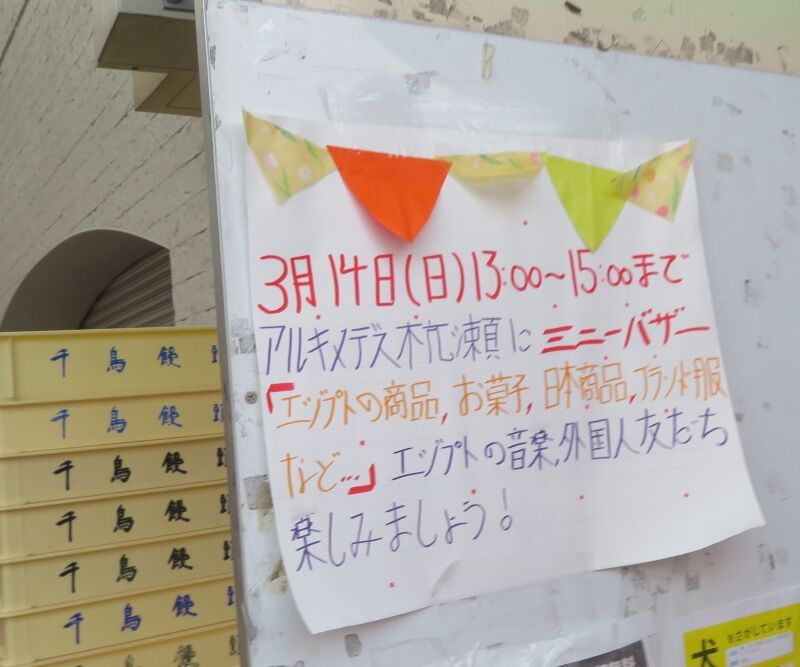 3月14日(日)13:00~15:00まで
アルキメデス杭瀬に ミニーバザー
「エジプトの商品, お菓子, 日本商品, ブランド服
など…」 エジプトの音楽, 外国人友だち
楽しみましょう!
千鳥饅
千鳥饅
千鳥饅
千鳥饅
千鳥饅
千鳥饅
千鳥饅
犬
をさがしています